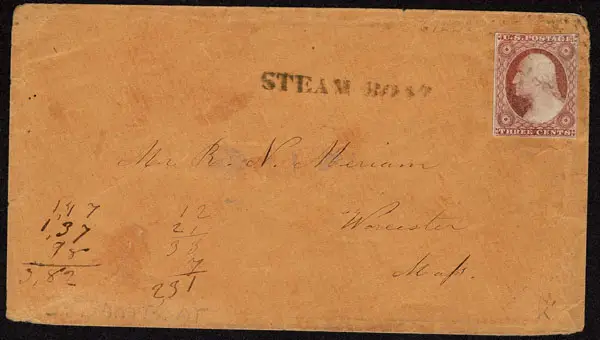 U.S. POSTAGE
THREE CENTS
STEAM BOAT
Mr. R. N. Meriam
Worcester
Mass.
1,47
1,37
98
3,82
12
21
33
7
231